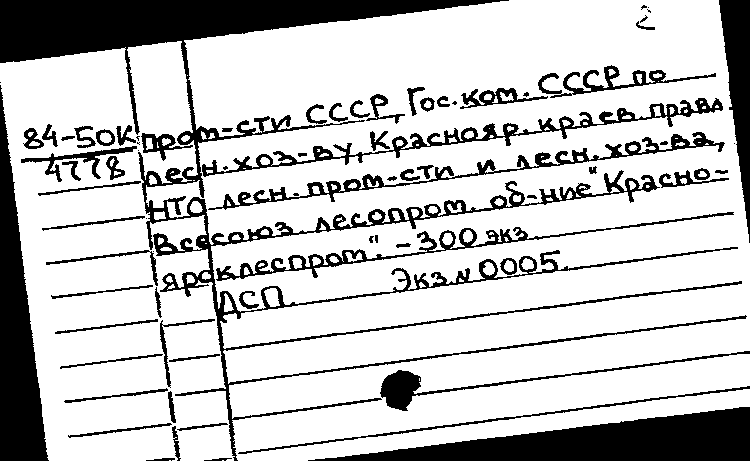 2
84-50К
4778
пром-сти СССР, Гос. ком. СССР по
лесн. хоз-ву, Краснояр. краев. правл.
НТО лесн. пром-сти и лесн. хоз-ва,
Всесоюз. лесопром. об-ние "Красно-
ярсклеспром". - 300 экз.
ДСП. Экз. N 0005.